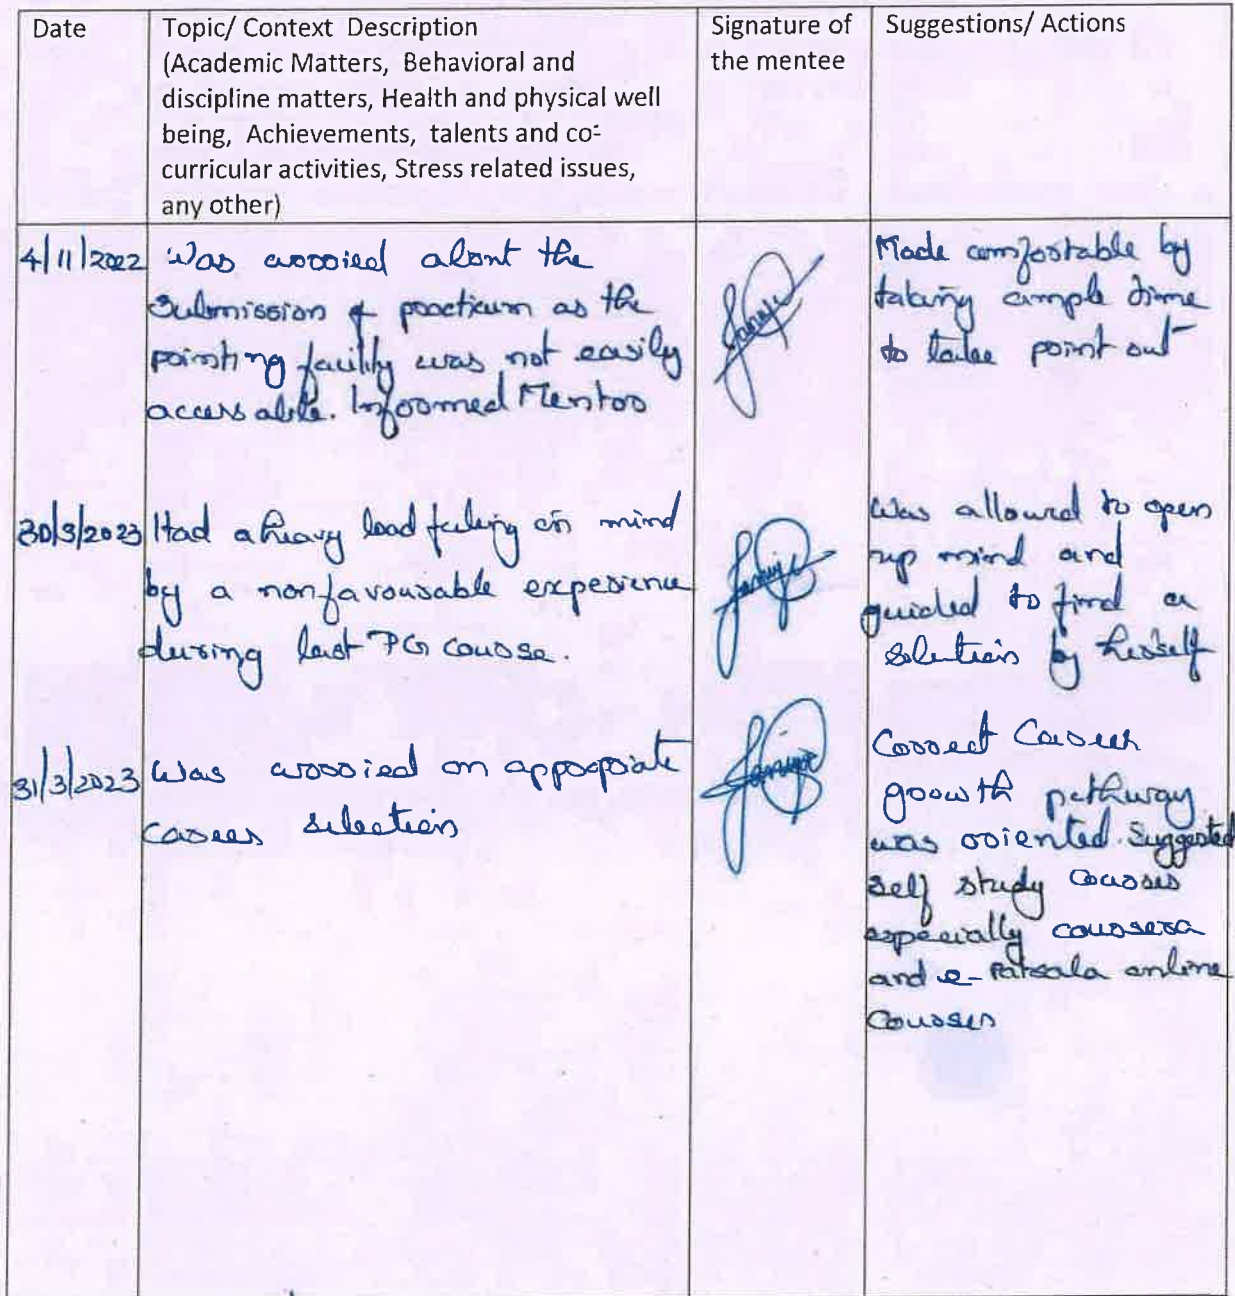 Date
Topic/ Context Description
(Academic Matters, Behavioral and
discipline matters, Health and physical well
being, Achievements, talents and co-
curricular activities, Stress related issues,
any other)
Signature of
the mentee
Suggestions/ Actions
4/11/2022
Was worried about the
submission of practicum as the
printing facility was not easily
accessable. Informed Mentor
Made comfortable by
taking ample time
to take print out
30/3/2023
Had a heavy load feeling in mind
by a nonfavourable experience
during last PG course.
Was allowed to open
up mind and
guided to find a
solution by herself
31/3/2023
Was worried on appropiate
career selection
Correct Career
growth pathway
was oriented. Suggested
self study courses
especially coursera
and e-Patsala online
Courses